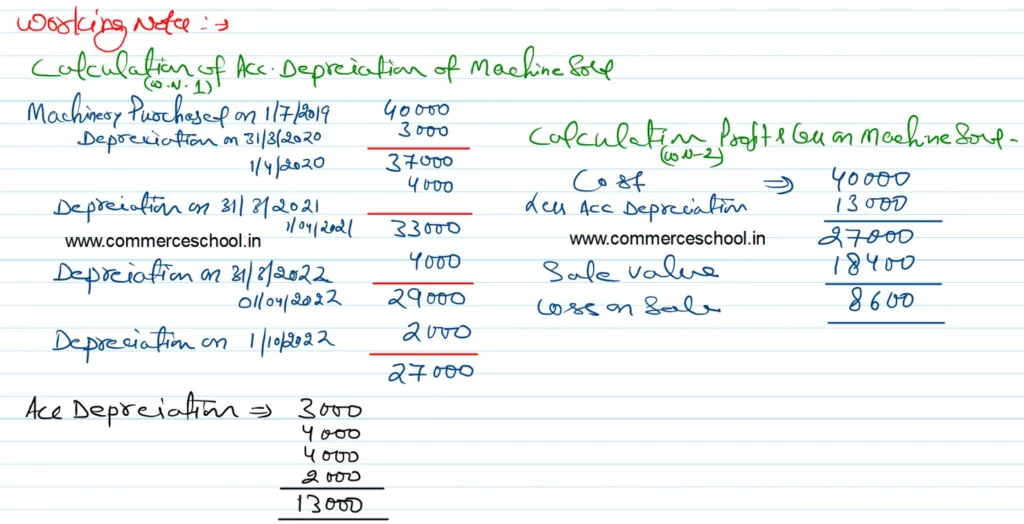 Working Note :→
Calculation of Acc. Depreciation of Machine Sold
(W.N.1)
Machinery Purchased on 1/7/2019 40000
Depreciation on 31/3/2020 3000
1/4/2020 37000
4000
Depreciation on 31/3/2021
1/04/2021 33000
www.commerceschool.in
4000
Depreciation on 31/3/2022
01/04/2022 29000
Depreciation on 1/10/2022 2000
27000
Acc Depreciation ⇒ 3000
4000
4000
2000
13000
Calculation Profit & Loss on Machine Sold -
(W.N-2)
Cost ⇒ 40000
Less Acc Depreciation 13000
www.commerceschool.in 27000
Sale value 18400
Loss on Sale 8600